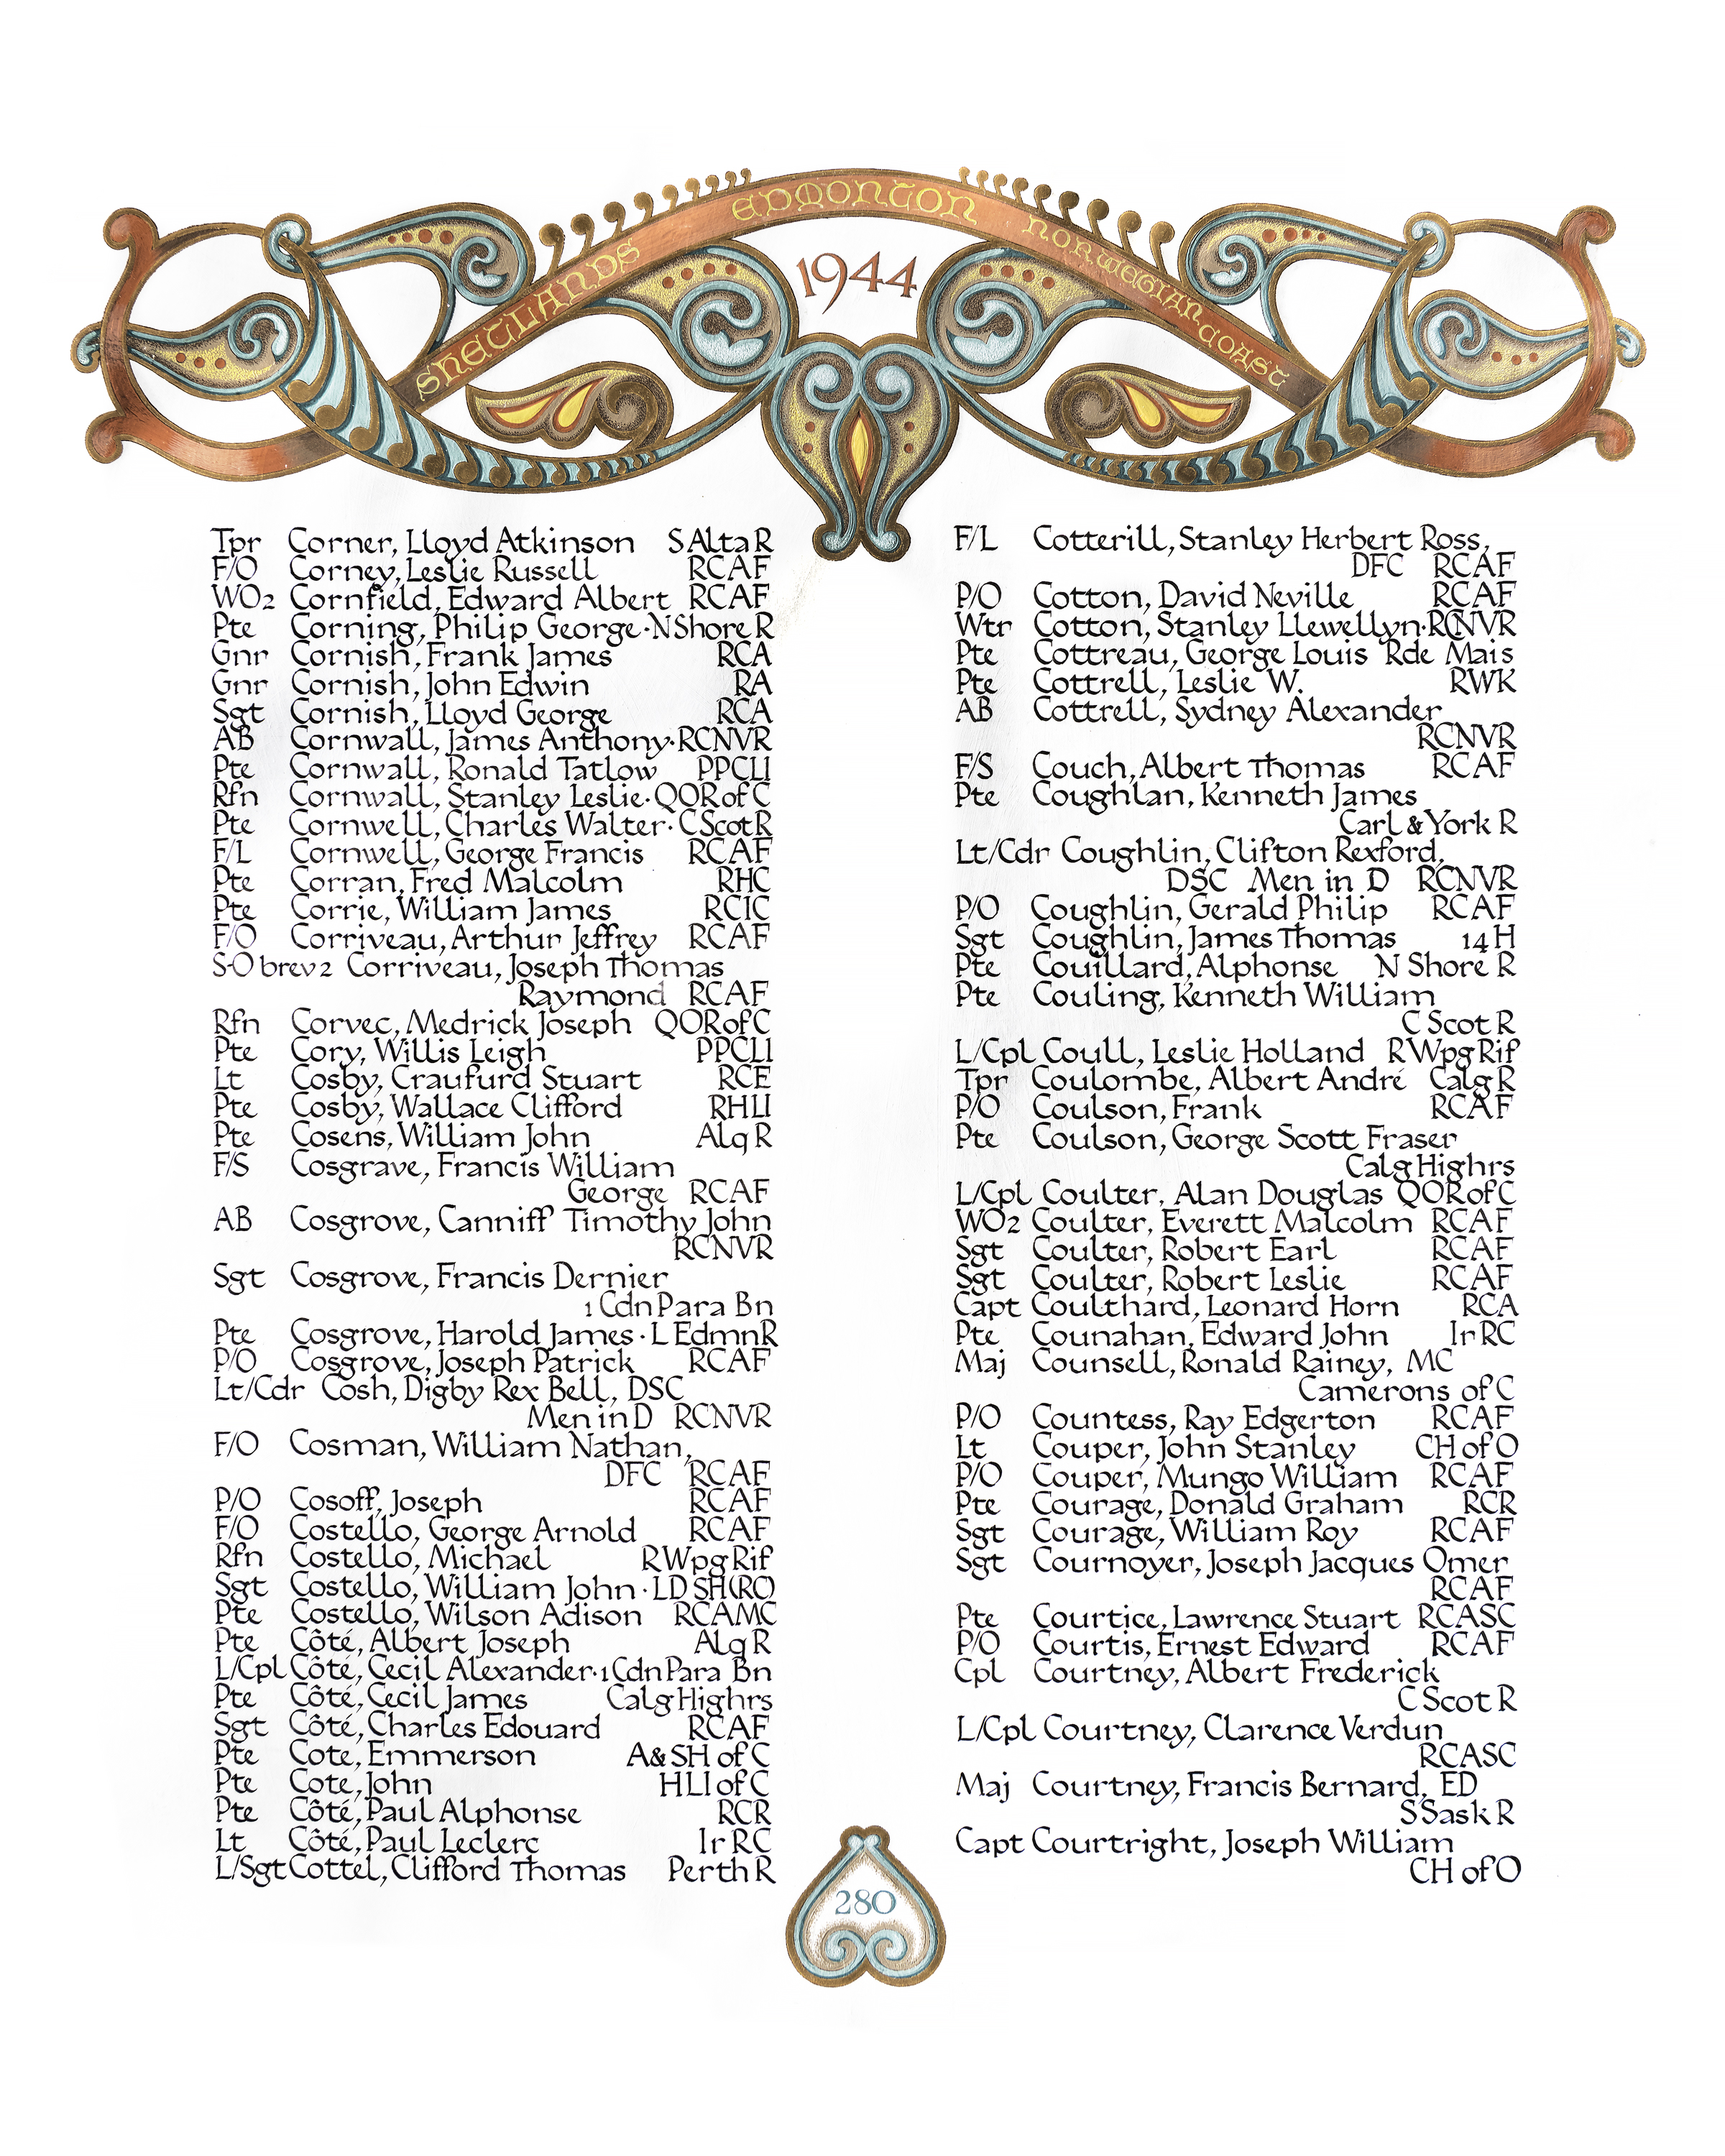 SHETLANDS EDMONTON NORWEGIAN COAST
1944
Tpr Corner, Lloyd Atkinson S Alta R
F/O Corney, Leslie Russell RCAF
WO2 Cornfield, Edward Albert RCAF
Pte Corning, Philip George·N Shore R
Gnr Cornish, Frank James RCA
Gnr Cornish, John Edwin RA
Sgt Cornish, Lloyd George RCA
AB Cornwall, James Anthony·RCNVR
Pte Cornwall, Ronald Tatlow PPCLI
Rfn Cornwall, Stanley Leslie·QOR of C
Pte Cornwell, Charles Walter·C Scot R
F/L Cornwell, George Francis RCAF
Pte Corran, Fred Malcolm RHC
Pte Corrie, William James RCIC
F/O Corriveau, Arthur Jeffrey RCAF
S-O brev 2 Corriveau, Joseph Thomas
Raymond RCAF
Rfn Corvec, Medrick Joseph QOR of C
Pte Cory, Willis Leigh PPCLI
Lt Cosby, Craufurd Stuart RCE
Pte Cosby, Wallace Clifford RHLI
Pte Cosens, William John Alq R
F/S Cosgrave, Francis William
George RCAF
AB Cosgrove, Canniff Timothy John
RCNVR
Sgt Cosgrove, Francis Dernier
1 Cdn Para Bn
Pte Cosgrove, Harold James·L Edmn R
P/O Cosgrove, Joseph Patrick RCAF
Lt/Cdr Cosh, Digby Rex Bell, DSC
Men in D RCNVR
F/O Cosman, William Nathan,
DFC RCAF
P/O Cosoff, Joseph RCAF
F/O Costello, George Arnold RCAF
Rfn Costello, Michael R Wpg Rif
Sgt Costello, William John·LD SH(RC)
Pte Costello, Wilson Adison RCAMC
Pte Côté, Albert Joseph Alq R
L/Cpl Côté, Cecil Alexander·1 Cdn Para Bn
Pte Côté, Cecil James Calg Highrs
Sgt Côté, Charles Edouard RCAF
Pte Cote, Emmerson A & SH of C
Pte Cote, John HLI of C
Pte Côté, Paul Alphonse RCR
Lt Côté, Paul Leclerc Ir RC
L/Sgt Cottel, Clifford Thomas Perth R
F/L Cotterill, Stanley Herbert Ross,
DFC RCAF
P/O Cotton, David Neville RCAF
Wtr Cotton, Stanley Llewellyn·RCNVR
Pte Cottreau, George Louis R de Mais
Pte Cottrell, Leslie W. RWK
AB Cottrell, Sydney Alexander
RCNVR
F/S Couch, Albert Thomas RCAF
Pte Coughlan, Kenneth James
Carl & York R
Lt/Cdr Coughlin, Clifton Rexford,
DSC Men in D RCNVR
P/O Coughlin, Gerald Philip RCAF
Sgt Coughlin, James Thomas 14 H
Pte Couillard, Alphonse N Shore R
Pte Couling, Kenneth William
C Scot R
L/Cpl Coull, Leslie Holland R Wpg Rif
Tpr Coulombe, Albert André Calg R
P/O Coulson, Frank RCAF
Pte Coulson, George Scott Fraser
Calg Highrs
L/Cpl Coulter, Alan Douglas QOR of C
WO2 Coulter, Everett Malcolm RCAF
Sgt Coulter, Robert Earl RCAF
Sgt Coulter, Robert Leslie RCAF
Capt Coulthard, Leonard Horn RCA
Pte Counahan, Edward John Ir RC
Maj Counsell, Ronald Rainey, MC
Camerons of C
P/O Countess, Ray Edgerton RCAF
Lt Couper, John Stanley CH of O
P/O Couper, Mungo William RCAF
Pte Courage, Donald Graham RCR
Sgt Courage, William Roy RCAF
Sgt Cournoyer, Joseph Jacques Omer
RCAF
Pte Courtice, Lawrence Stuart RCASC
P/O Courtis, Ernest Edward RCAF
Cpl Courtney, Albert Frederick
C Scot R
L/Cpl Courtney, Clarence Verdun
RCASC
Maj Courtney, Francis Bernard, ED
S Sask R
Capt Courtright, Joseph William
CH of O
280